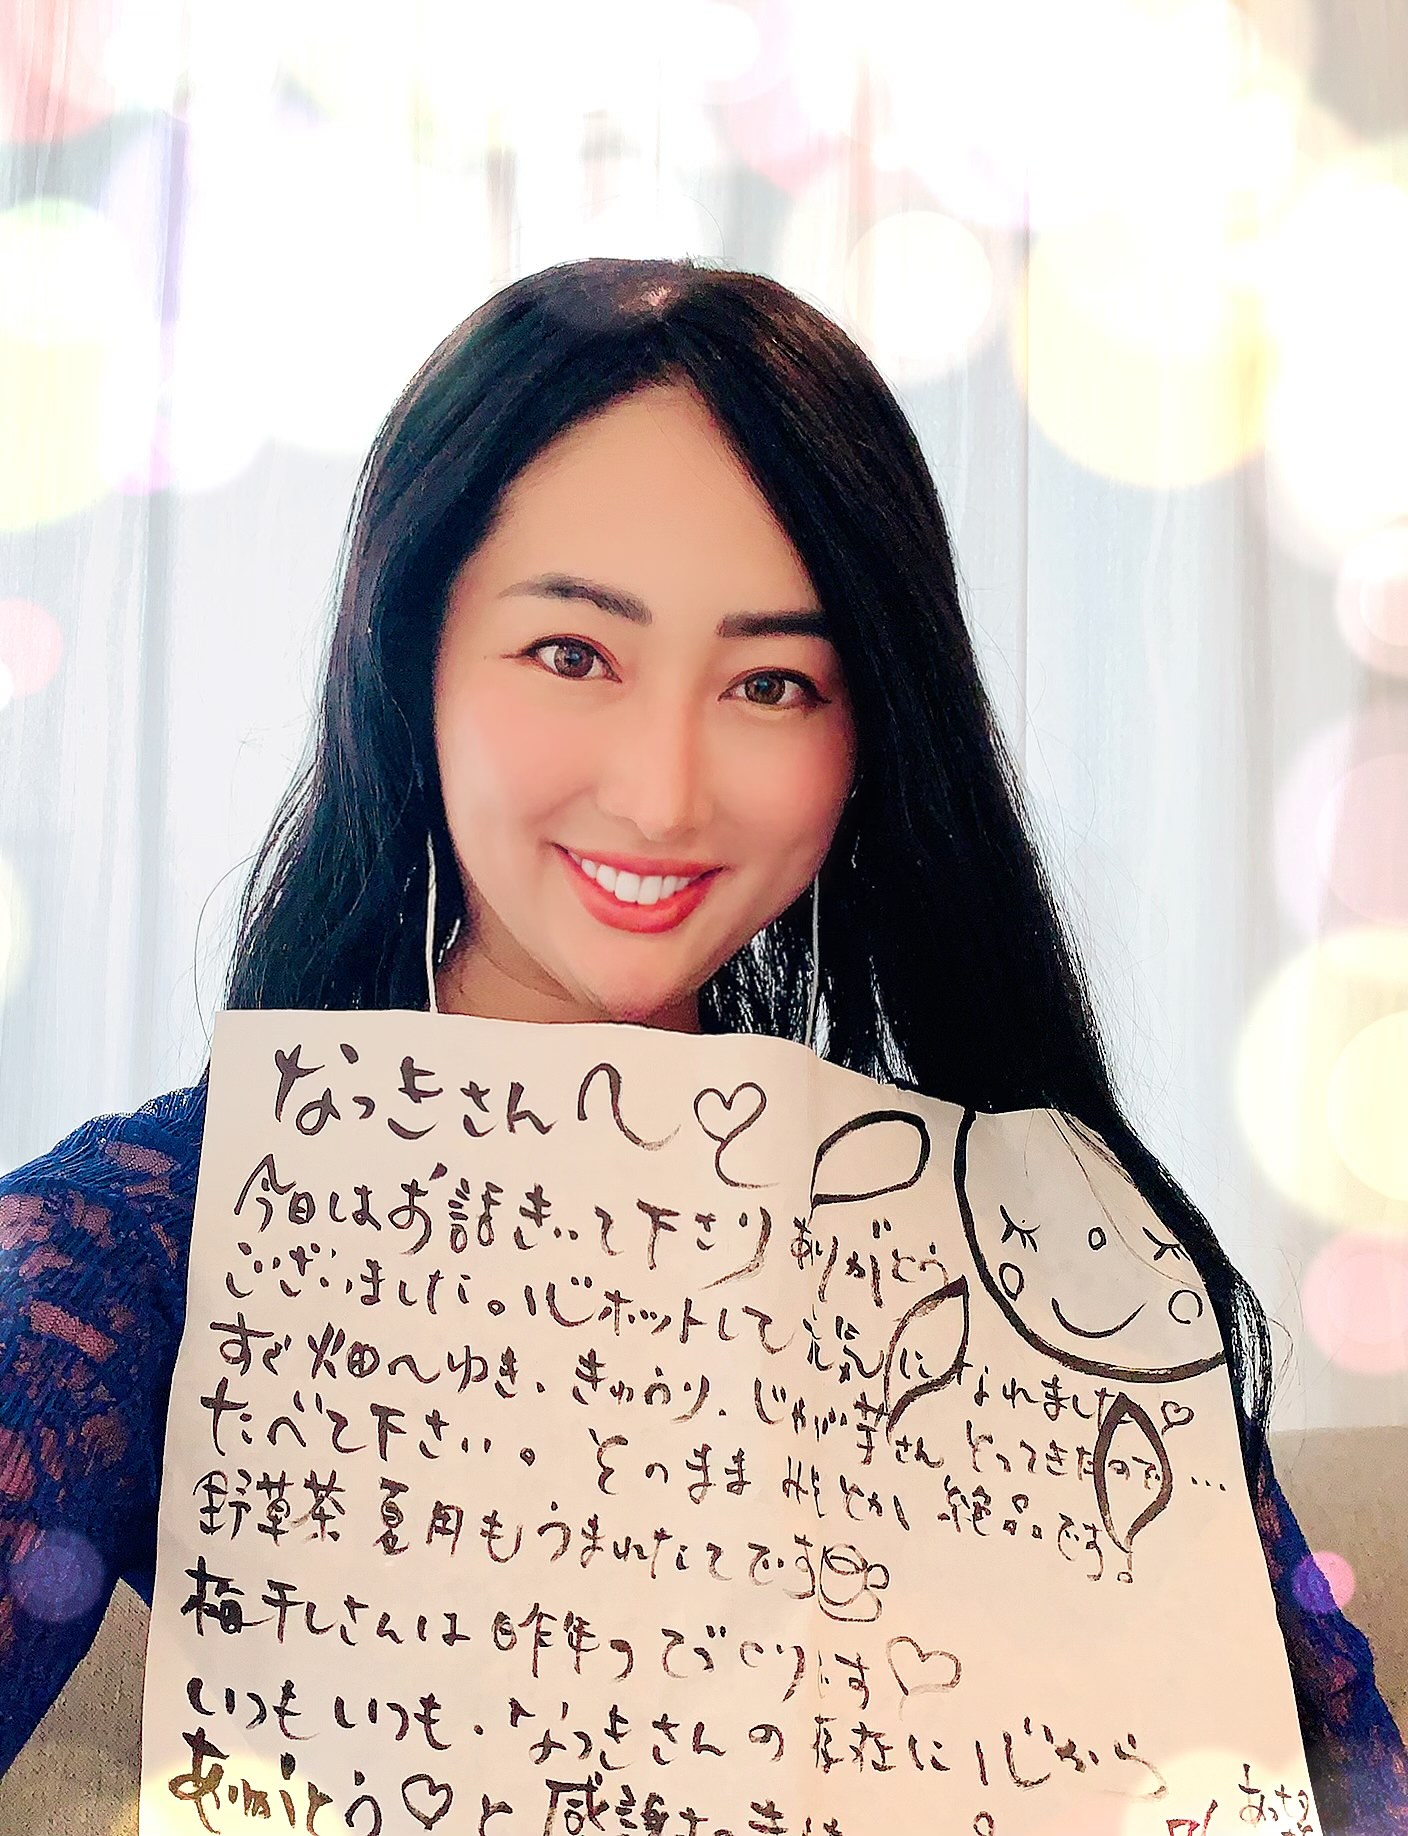 なつきさんへ♡
今日はお話きいて下さりありがとう
ございました。心ホットして元気になれました♡
すぐ畑へゆき、きゅうり、じゃが芋さんとってきたので…
たべて下さい。そのままみそとか絶品です!
野草茶 夏用もうまれたてです
梅干しさんは昨年つてづくりです♡
いつもいつも、なつきさんの存在に心から
ありがとう♡と感謝